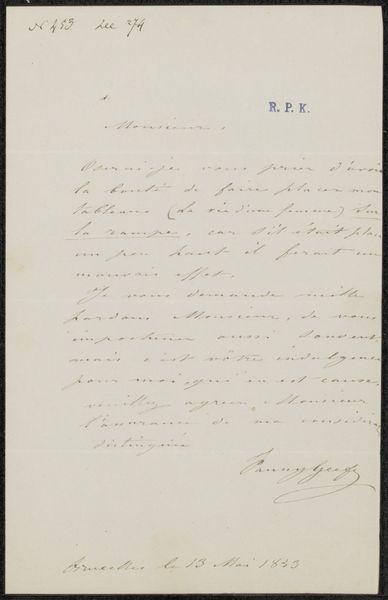 N 453 Lee 274
R. P. K.
Monsieur,
Oserai-je vous prier d'avoir
la bonté de faire placer mon
tableau (la vie d'une femme) sur
la rampe, car s'il était placé
un peu haut il ferait un
mauvais effet.
Je vous demande mille
pardons Monsieur, de vous
importuner aussi souvent,
mais c'est vôtre indulgence
pour moi, qui en est cause,
veuillez agréer Monsieur
l'assurance de ma considération
distinguée
Fanny Geefs
Bruxelles le 13 Mai 1843